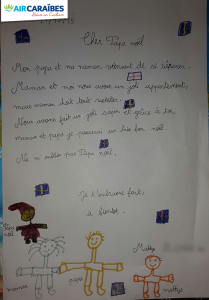 AIR CARAÏBES
Cher Papa noël
Mon papa et ma maman viennent de se séparer.
Maman et moi nous avons un joli appartement,
mais maman doit tout racheter.
Nous avons fait un joli sapin et grâce à toi,
maman et papa je passerai un très bon noël.
Ne m'oublie pas Papa noël,
Je t'embrasse fort,
à bientôt.
Papa
noël
maman
papa